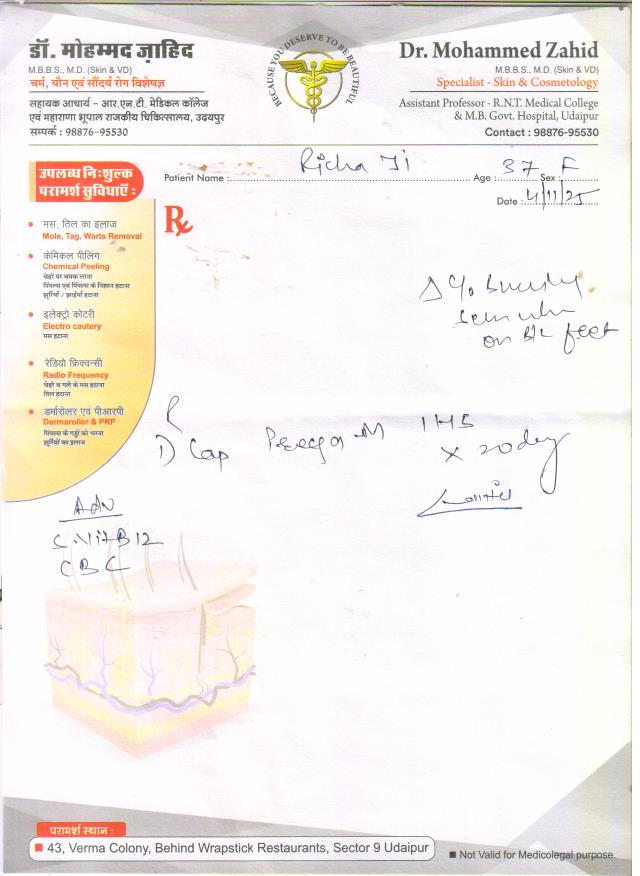 डॉ. मोहम्मद ज़ाहिद
M.B.B.S., M.D. (Skin & VD)
चर्म, यौन एवं सौंदर्य रोग विशेषज्ञ
सहायक आचार्य – आर.एन.टी. मेडिकल कॉलेज
एवं महाराणा भूपाल राजकीय चिकित्सालय, उदयपुर
सम्पर्क : 98876-95530
BECAUSE YOU DESERVE TO BE BEAUTIFUL
Dr. Mohammed Zahid
M.B.B.S., M.D. (Skin & VD)
Specialist - Skin & Cosmetology
Assistant Professor - R.N.T. Medical College
& M.B. Govt. Hospital, Udaipur
Contact : 98876-95530
Patient Name : Richa Ji Age : 37 Sex : F
Date : 4/11/25
उपलब्ध निःशुल्क
परामर्श सुविधाएँ :
मस, तिल का इलाज
Mole, Tag, Warts Removal
केमिकल पीलिंग
Chemical Peeling
चेहरे पर चमक लाना
पिंपल्स एवं पिंपल्स के निशान हटाना
झुर्रियां / झाईयां हटाना
इलेक्ट्रो कोटरी
Electro cautery
मस हटाना
रेडियो फ्रिक्वन्सी
Radio Frequency
चेहरे व गले के मस हटाना
तिल हटाना
डर्मारोलर एवं पीआरपी
Dermaroller & PRP
पिंपल्स के गड्डों को भरना
झुर्रियों का इलाज
Rx
on B/L feet
1) Cap M 1HS
x 20 day
Adv
S. Vit B12
CBC
परामर्श स्थान :
43, Verma Colony, Behind Wrapstick Restaurants, Sector 9 Udaipur
Not Valid for Medicolegal purpose.